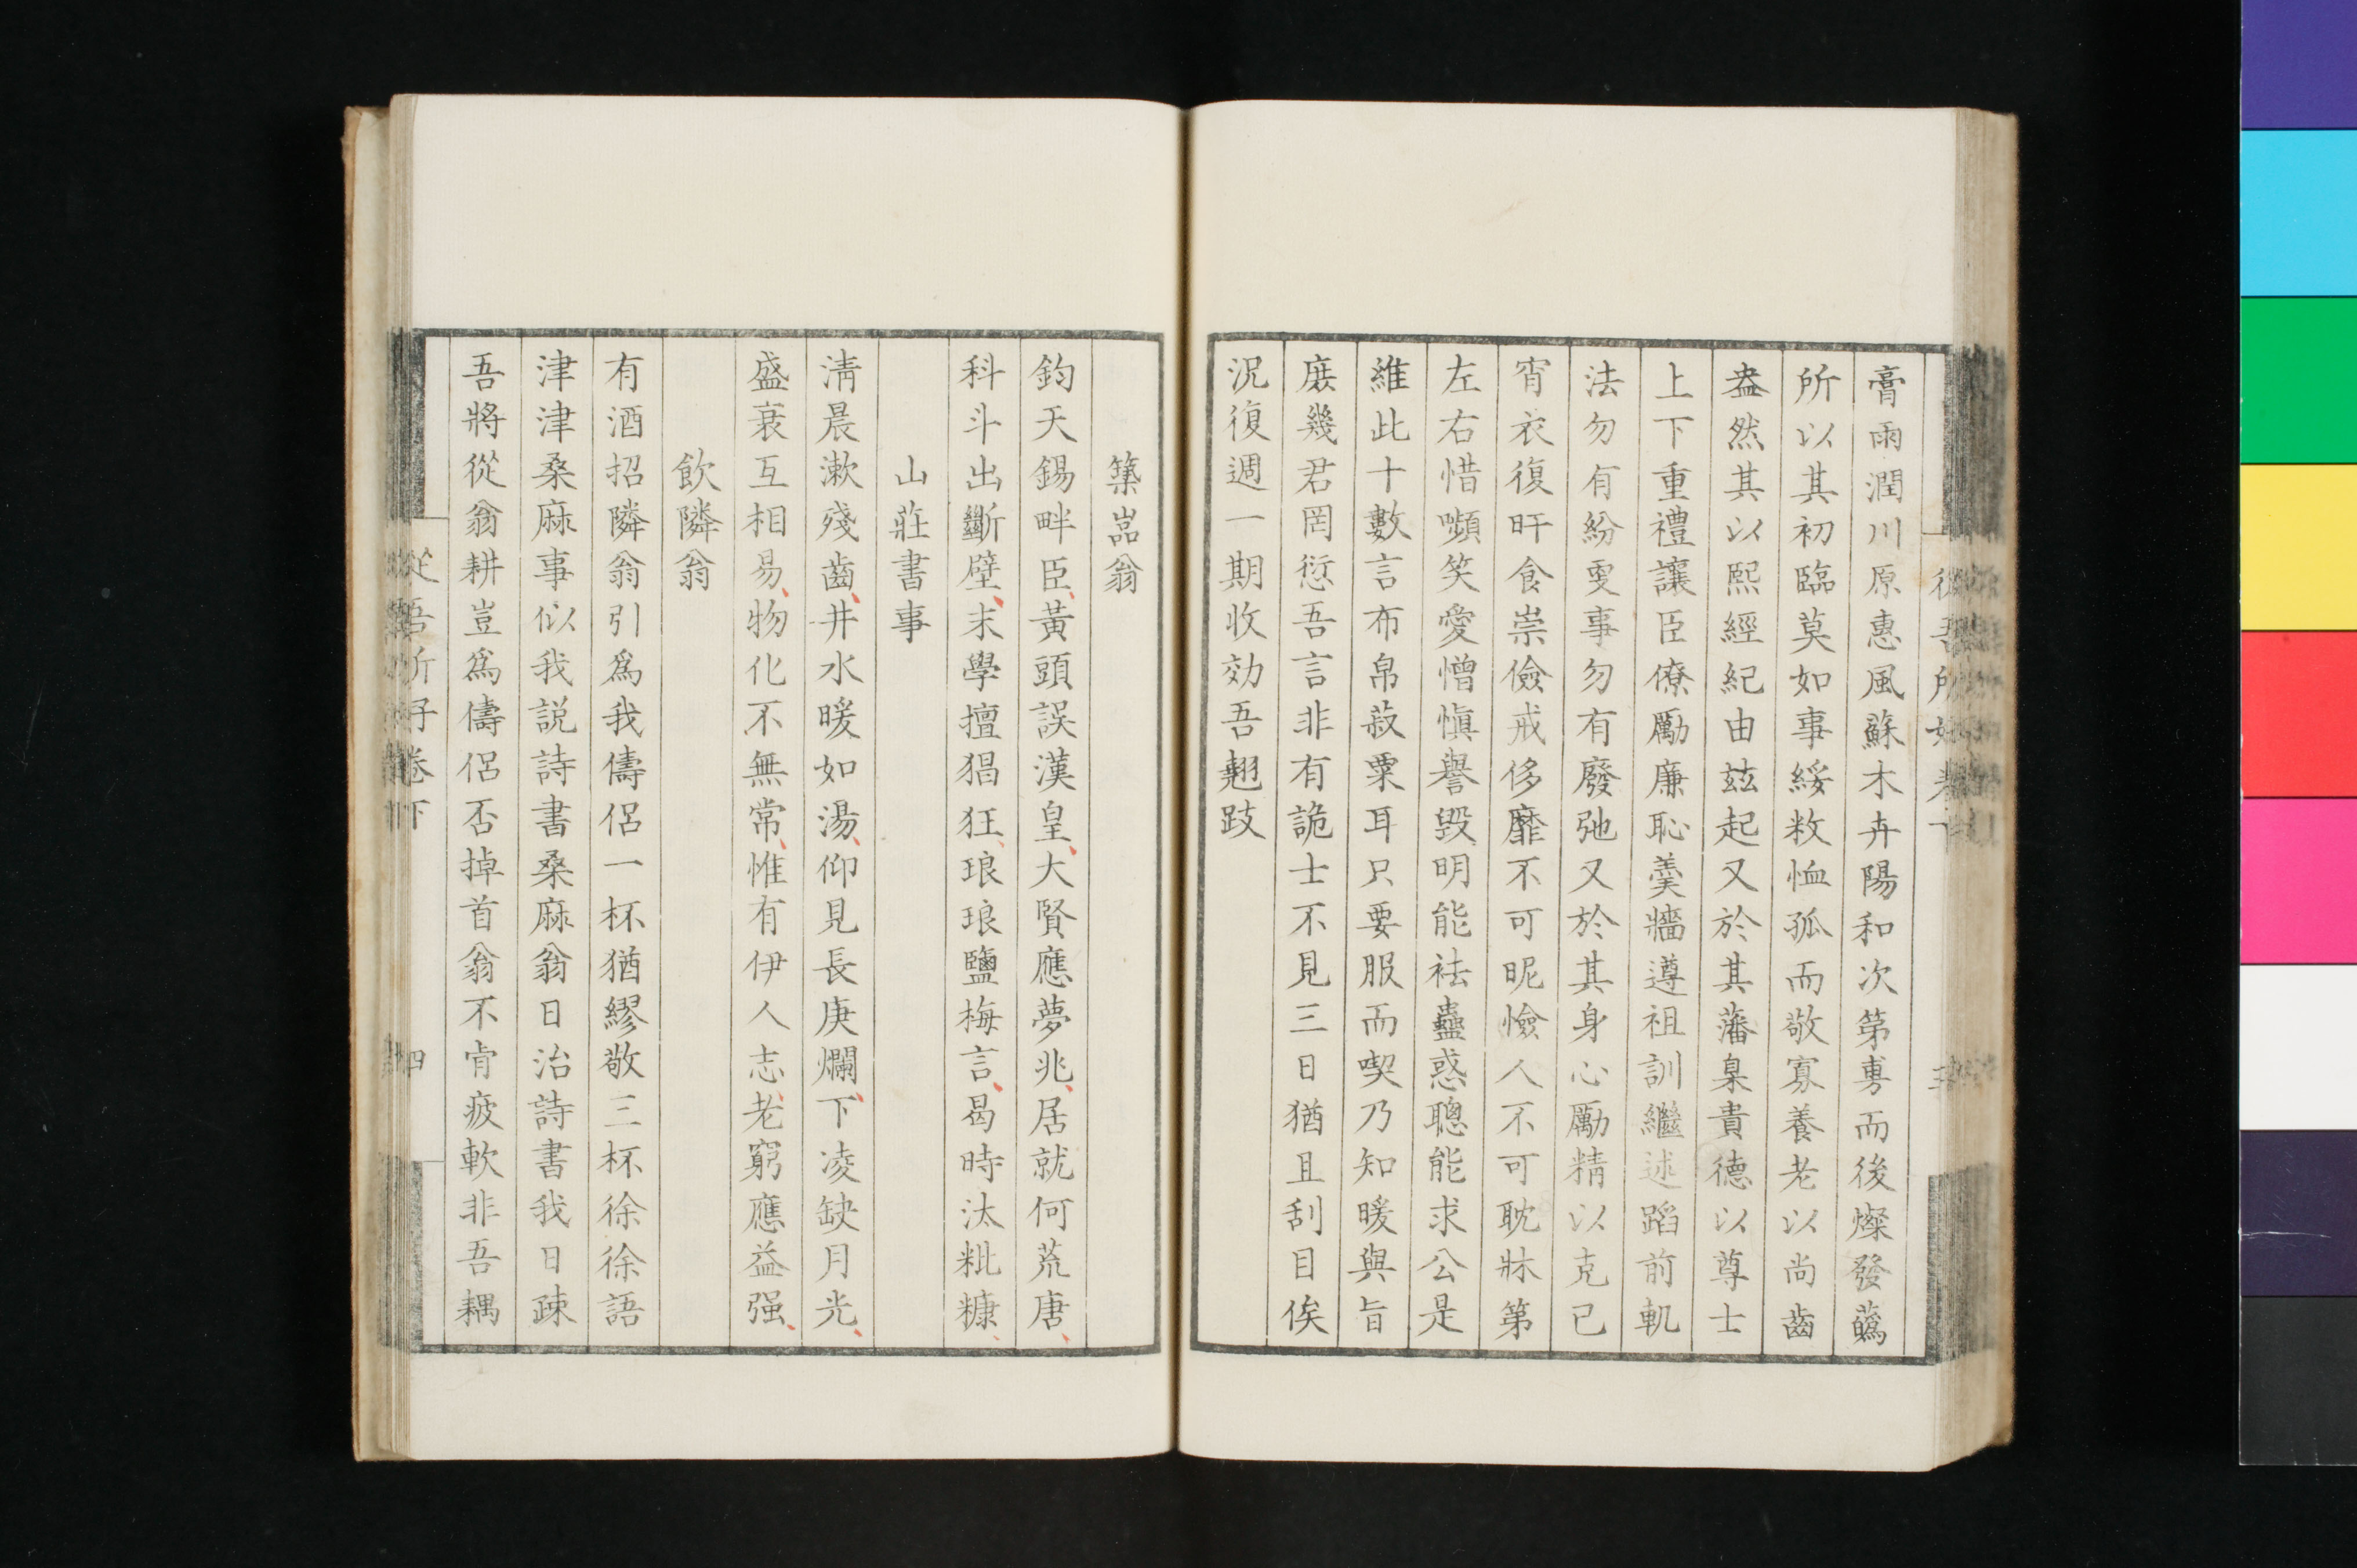 膏雨潤川原惠風蘇木卉陽和次第旉而後燦發蘤
所以其初臨莫如事綏敉恤孤而敬寡養老以尚齒
盎然其以熙經紀由玆起又於其藩臬貴德以尊士
上下重禮讓臣僚勵廉恥羹牆遵祖訓繼述蹈前軌
法勿有紛更事勿有廢弛又於其身心勵精以克己
宵衣復旰食崇儉戒侈靡不可昵憸人不可耽牀第
左右惜嚬笑愛憎愼譽毀明能祛蠱惑聰能求公是
維此十數言布帛菽粟耳只要服而喫乃知暖與旨
庶幾君罔愆吾言非有詭士不見三日猶且刮目俟
況復週一期收効吾翹跂
築嵓翁
鈞天錫畔臣黃頭誤漢皇大賢應夢兆居就何荒唐
科斗出斷壁末學擅猖狂琅琅鹽梅言曷時汰粃糠
山莊書事
淸晨漱殘齒井水暖如湯仰見長庚爛下凌缺月光
盛衰互相易物化不無常惟有伊人志老窮應益强
飲隣翁
有酒招隣翁引爲我儔侶一杯猶繆敬三杯徐徐語
津津桑麻事似我説詩書桑麻翁日治詩書我日疎
吾將從翁耕豈爲儔侶否掉首翁不肯疲軟非吾耦
從吾所好卷下
四